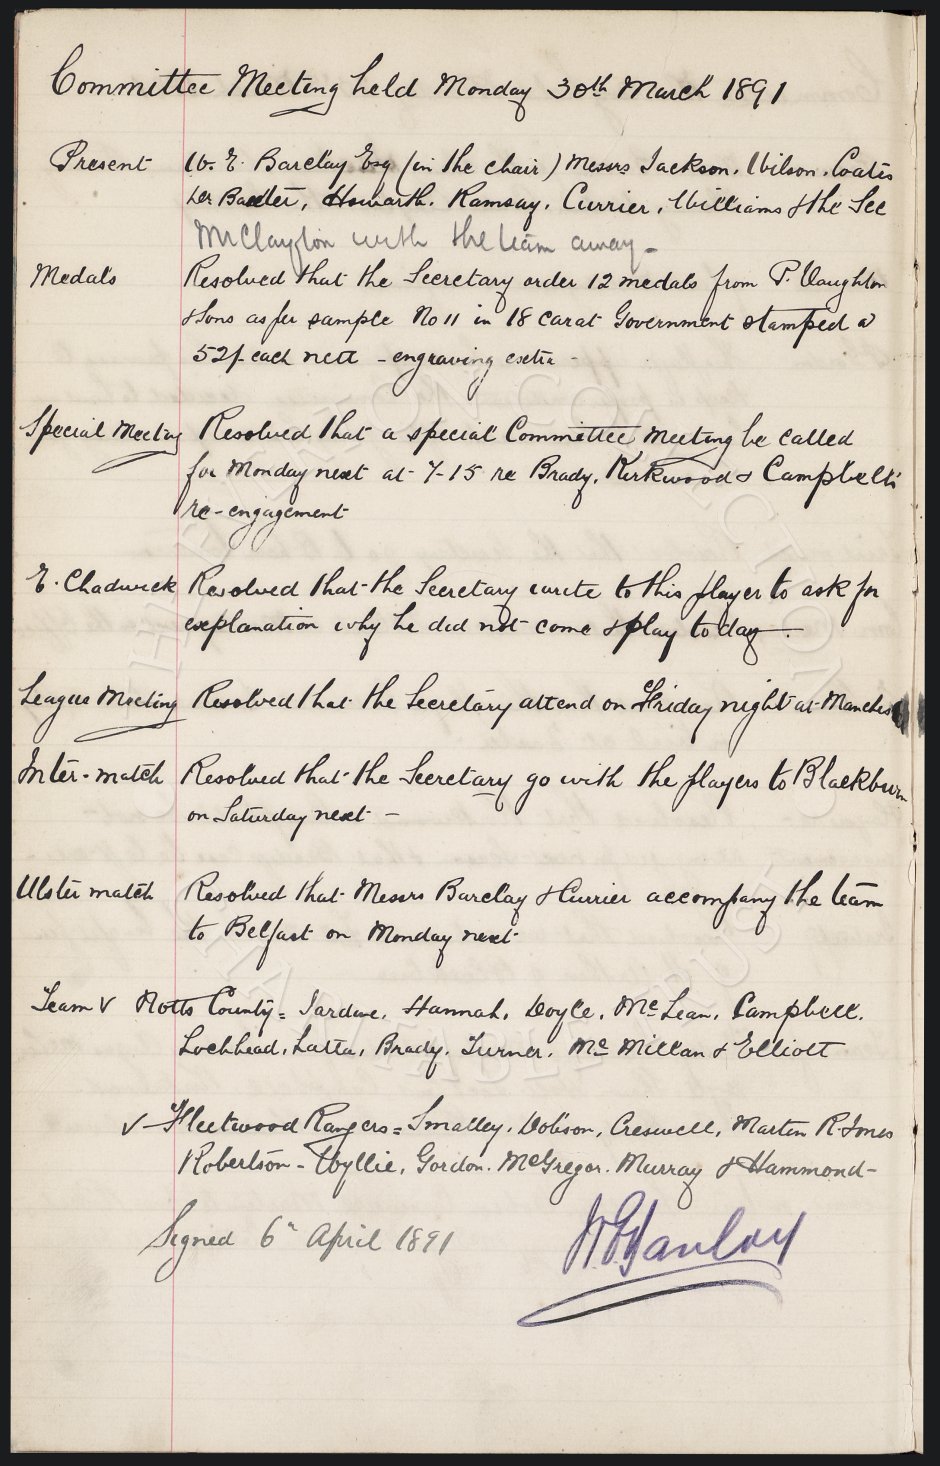 Committee Meeting held Monday 30th March 1891
Present W. E. Barclay Esq (in the chair) Messrs Jackson. Wilson. Coates
Dr Baxter, Howarth. Ramsay. Currier. Williams & the Sec
Mr Clayton with the team away -
Medals Resolved that the Secretary order 12 medals from P. Vaughton
& Sons as per sample No 11 in 18 carat Government stamped @
52/- each nett - engraving extra -
Special Meeting Resolved that a special Committee Meeting be called
for Monday next at 7-15 re Brady, Kirkwood & Campbell's
re-engagement
E. Chadwick Resolved that the Secretary write to this player to ask for
explanation why he did not come & play to day -.
League Meeting Resolved that the Secretary attend on Friday night at Manches
Inter-match Resolved that the Secretary go with the players to Blackburn
on Saturday next -
Ulster match Resolved that Messrs Barclay & Currier accompany the team
to Belfast on Monday next
Team v Notts County = Jardine. Hannah. Doyle. Mc Lean. Campbell.
Lochhead. Latta. Brady. Turner. Mc Millan & Elliott
v Fleetwood Rangers = Smalley. Dobson, Creswell, Martin R. Jones
Robertson - Wyllie, Gordon. McGregor. Murray & Hammond -
Signed 6th April 1891